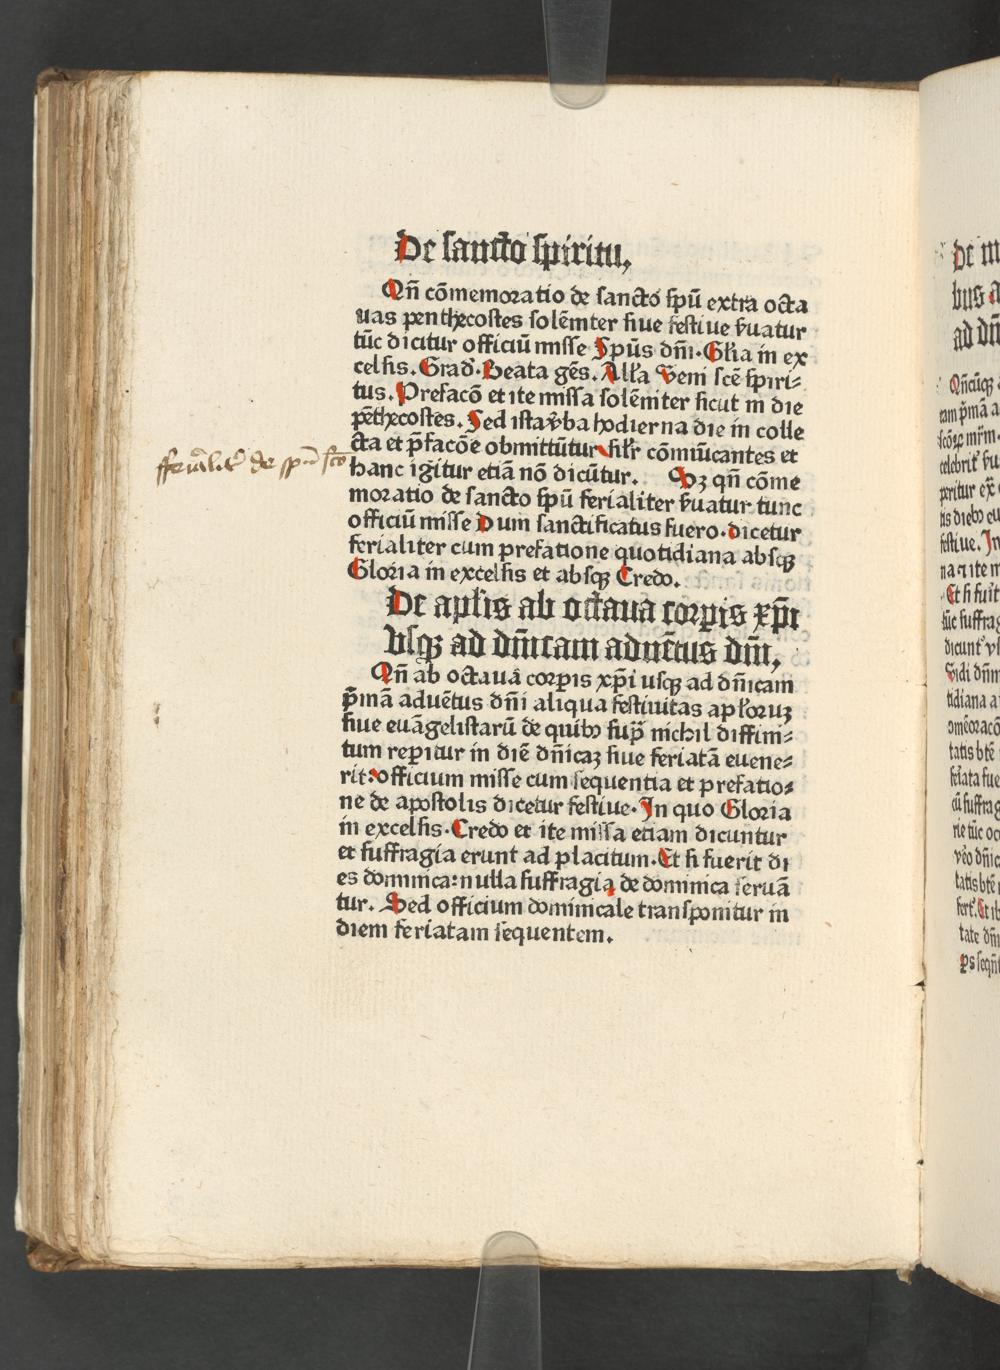 De sancto spiritu,
Qñ cōmemoratio de sancto spū extra octa
uas penthecostes solēniter siue festiue ẜuatur
tūc dicitur officiū misse Spūs dñi. Gl'ia in ex
celsis. Grad'. Beata gēs. All'a Veni scē spiri-
tus. Prefacō et ite missa solēniter sicut in die
pēthecostes. Sed ista v̄ba hodierna die in colle
cta et p̄facōe obmittūtur Sil'r cōmūcantes et
hanc igitur etiā nō dicūtur. Sꝫ qñ cōme
moratio de sancto spū ferialiter ẜuatur tunc
officiū misse Dum sanctificatus fuero. dicetur
ferialiter cum prefatione quotidiana absqꝫ
Gloria in excelsis et absqꝫ Credo.
De apl'is ab octaua corpis xp̄i
vsqꝫ ad dñicam aduētus dñi,
Qñ ab octaua corpis xp̄i usqꝫ ad dñicam
p̄mā aduētus dñi aliqua festiuitas apl'oruꝫ
siue euāgelistarū de quibꝰ sup̄ nichil diffini-
tum reperitur in diē dñicaꝫ siue feriatā euene-
rit: officium misse cum sequentia et prefatio-
ne de apostolis dicetur festiue. In quo Gloria
in excelsis. Credo et ite missa etiam dicuntur
et suffragia erunt ad placitum. Et si fuerit di
es dominica: nulla suffragia de dominica seruā
tur. Sed officium dominicale transponitur in
diem feriatam sequentem.
fferialit' de spū scō
De m
bus a
ad dñ